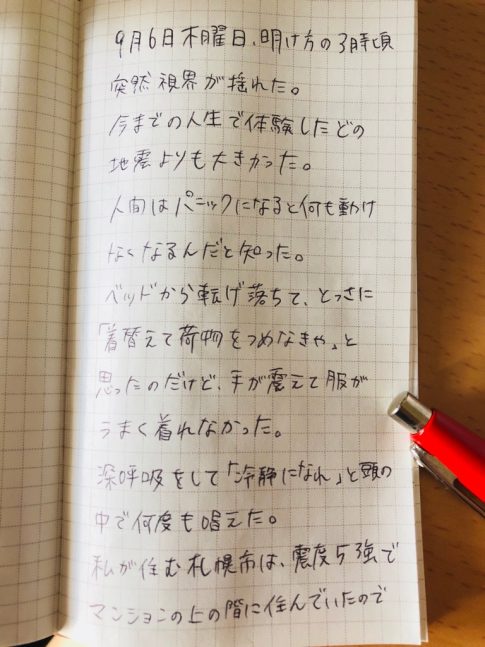 9月6日木曜日、明け方の3時頃
突然視界が揺れた。
今までの人生で体験したどの
地震よりも大きかった。
人間はパニックになると何も動け
なくなるんだと知った。
ベッドから転げ落ちて、とっさに
「着替えて荷物をつめなきゃ」と
思ったのだけど、手が震えて服が
うまく着れなかった。
深呼吸をして「冷静になれ」と頭の
中で何度も唱えた。
私が住む札幌市は、震度5強で
マンションの上の階に住んでいたので